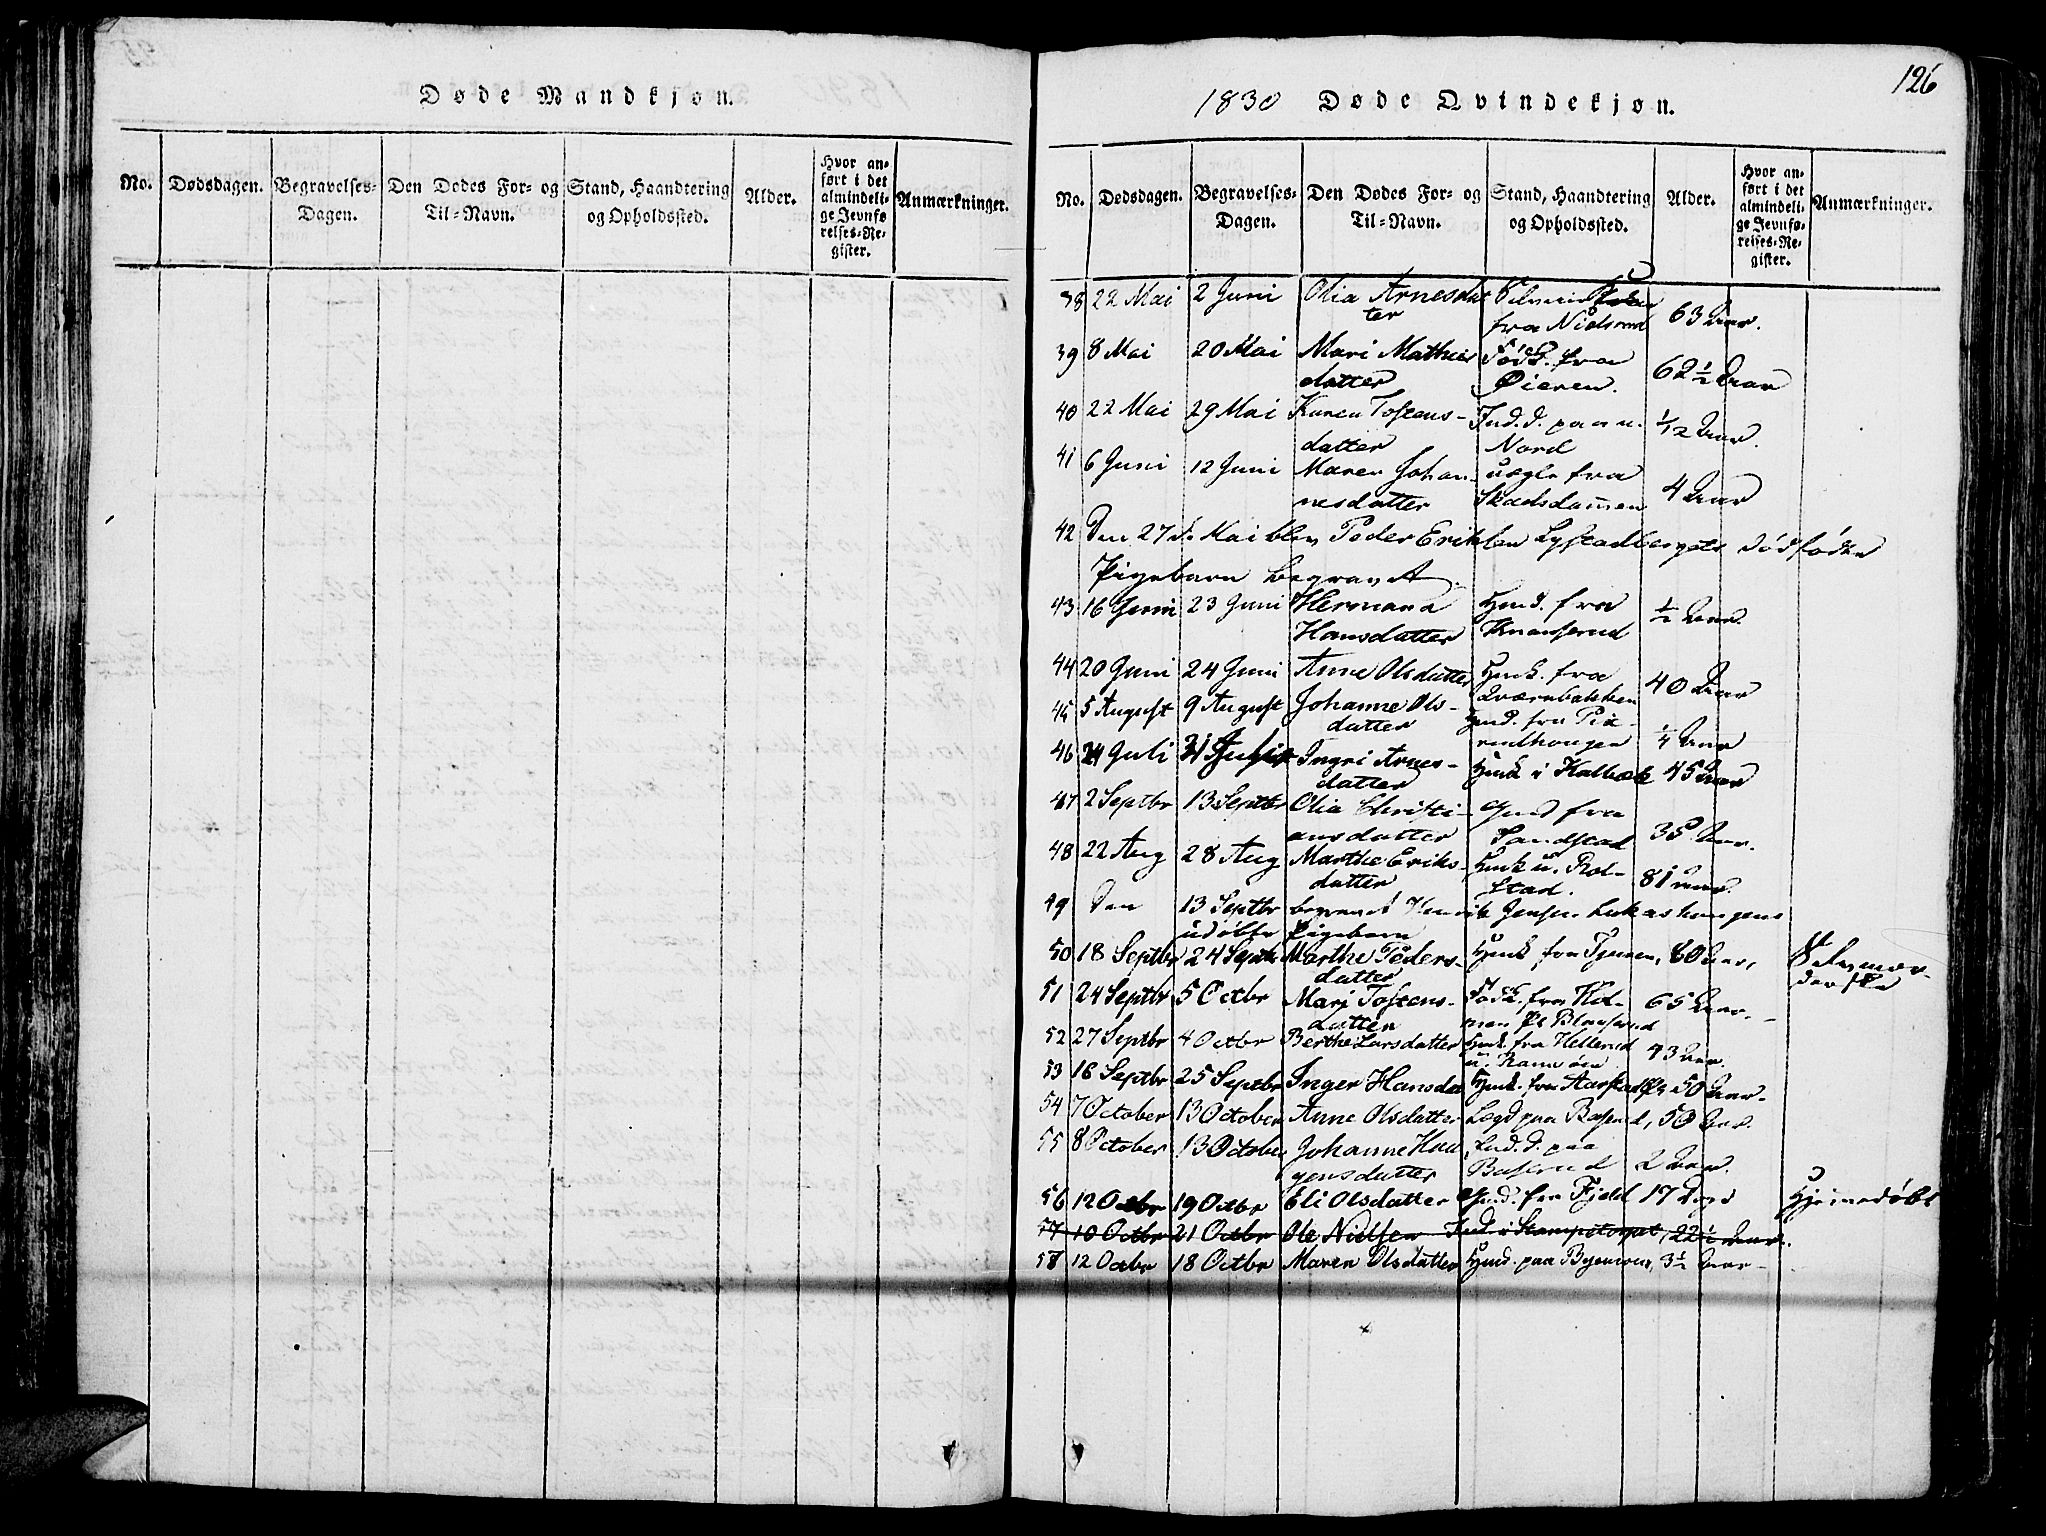 Døde Mandkjøn.
No.
Dødsdagen.
Begravelses-
Dagen.
Den Dødes For- og
Til-Navn.
Stand, Haandtering
og Opholdssted.
Alder.
Hvor an-
ført i det
almindeli-
ge Jevnfø
relses-Re-
gister.
Anmærkninger.
126
1830 Døde Qvindekjøn.
No.
Dødsdagen.
Begravelses-
Dagen.
Den Dødes For- og
Til-Navn.
Stand, Haandtering
og Opholdssted.
Alder.
Hvor an-
ført i det
almindeli-
ge Jevnfø-
relses-Re-
gister.
Anmærkninger.
38 22 Mai 2 Juni Olia Arnesdat
ter fra 63 Aar.
39 8 Mai 20 Mai Mari Mathis Fødk. fra
datter Øieren. 62 1/2 Aar
40 22 Mai 29 Mai Karen Tostens- Ind. d. paa u.
datter Nord 1/12 Aar.
41 6 Juni 12 Juni Maren Johan- uægte fra
nesdatter Skadsdammen 4 Aar
42 Den 27 d. Mai blev Peder Eriksen Lystadbergets dødfødte
Pigebarn begravet.
43 16 Juni 23 Juni Hermana Hmd. fra
Hansdatter Knapserud 1/2 Aar.
44 20 Juni 24 Juni Anne Olsdatter Hmk. fra
Qværnbakken 40 Aar
45 5 August 9 August Johanne Ols- Hmd. fra
datter 1/4 Aar
46 24 Juli 31 Juli Ingri Arnes- Hmk i Kalbæk 45 Aar
datter
47 2 Septbr 13 Septbr Olia Christi- Gmd fra
ansdatter Sandstad 35 Aar.
48 22 Aug 28 Aug Marthe Eriks- Hmk u. Rol-
datter stad. 81 Aar.
49 Den 13 Septbr begravet Henrik Jensen Lukashaugens
udøbte Pigebarn
50 18 Septbr 24 Septbr Marthe Peders- Hmk fra 80 Aar, Selvmor-
datter derske
51 24 Septbr 5 Octbr Mari Tostens- Fødk. fra Hol-
datter men 65 Aar.
52 27 Septbr 4 Octbr Berthe Larsdatter Hmk. fra Hellerud
u. 43 Aar.
53 16 Septbr 25 Septbr Inger Hansda Hmk. fra Aarstad 50 Aar.
54 7 October 13 October Anne Olsdatter Lægd paa Baserud, 50 Aar.
55 8 October 13 October Johanne Haa Ind. d. paa
gensdatter Baserud 2 Aar.
56 12 Octbr 19 Octbr Eli Olsdatter Gmd. fra Fjeld 17 Dage Hjemmedøbt
57 10 Octbr 21 Octbr Ole Nielsen Ind. i Stampetorpet, 22 1/2 Aar.
58 12 Octbr 18 Octbr Maren Olsdatter Hmd. paa 3 1/2 Aar